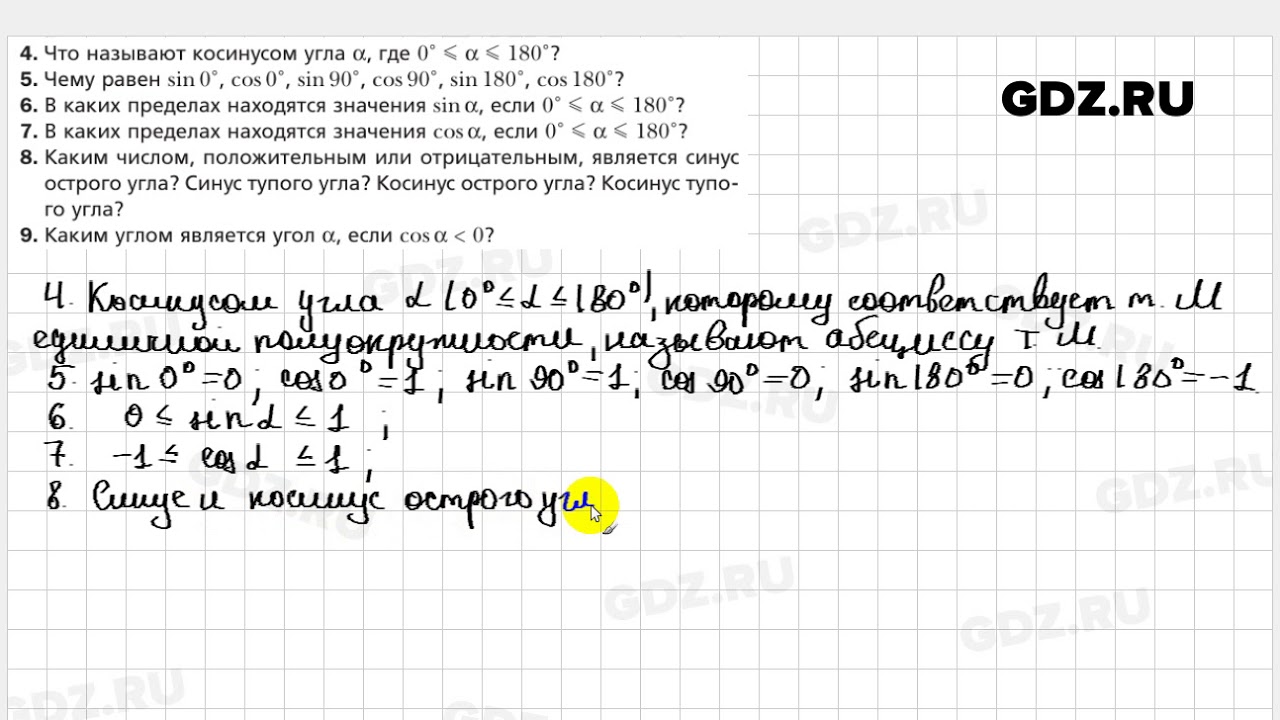 4. Что называют косинусом угла α, где 0° ⩽ α ⩽ 180°?
5. Чему равен sin 0°, cos 0°, sin 90°, cos 90°, sin 180°, cos 180°?
6. В каких пределах находятся значения sin α, если 0° ⩽ α ⩽ 180°?
7. В каких пределах находятся значения cos α, если 0° ⩽ α ⩽ 180°?
8. Каким числом, положительным или отрицательным, является синус
острого угла? Синус тупого угла? Косинус острого угла? Косинус тупо-
го угла?
9. Каким углом является угол α, если cos α < 0?
GDZ.RU
4. Косинусом угла α (0° ≤ α ≤ 180°), которому соответствует т. М
единичной полуокружности, называют абсциссу т. М.
5. sin 0° = 0; cos 0° = 1; sin 90° = 1; cos 90° = 0; sin 180° = 0; cos 180° = -1.
6. 0 ≤ sin α ≤ 1 ;
7. -1 ≤ cos α ≤ 1 ;
8. Синус и косинус острого угл
GDZ.RU
GDZ.RU
GDZ.RU
GDZ.RU
GDZ.RU
GDZ.RU
GDZ.RU
GDZ.RU
GDZ.RU